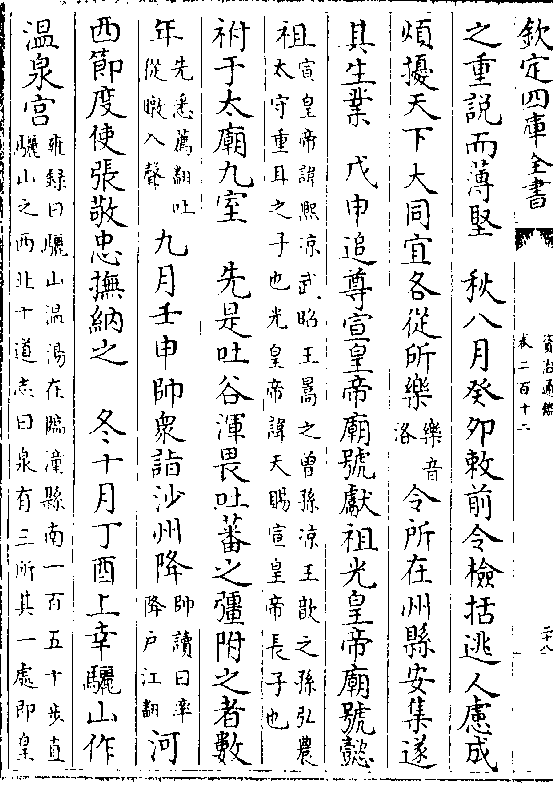 欽定四庫全書
資治通鑑
卷二百十二
之重説而薄堅　秋八月癸夘敕前令檢括逃人慮成
煩擾天下大同宜各從所樂樂音洛令所在州縣安集遂
其生業　戊申追尊宣皇帝廟號獻祖光皇帝廟號懿
祖宣皇帝諱熙凉武昭王暠之曾孫凉王歆之孫弘農太守重耳之子也光皇帝諱天賜宣皇帝長子也
祔于太廟九室　先是吐谷渾畏吐蕃之彊附之者數
年先悉薦翻吐從暾入聲九月壬申帥衆詣沙州降帥讀曰率降户江翻河
西節度使張敬忠撫納之　冬十月丁酉上幸驪山作
温泉宫雍録曰驪山温湯在臨潼縣南一百五十步直驪山之西北十道志曰泉有三所其一處即皇